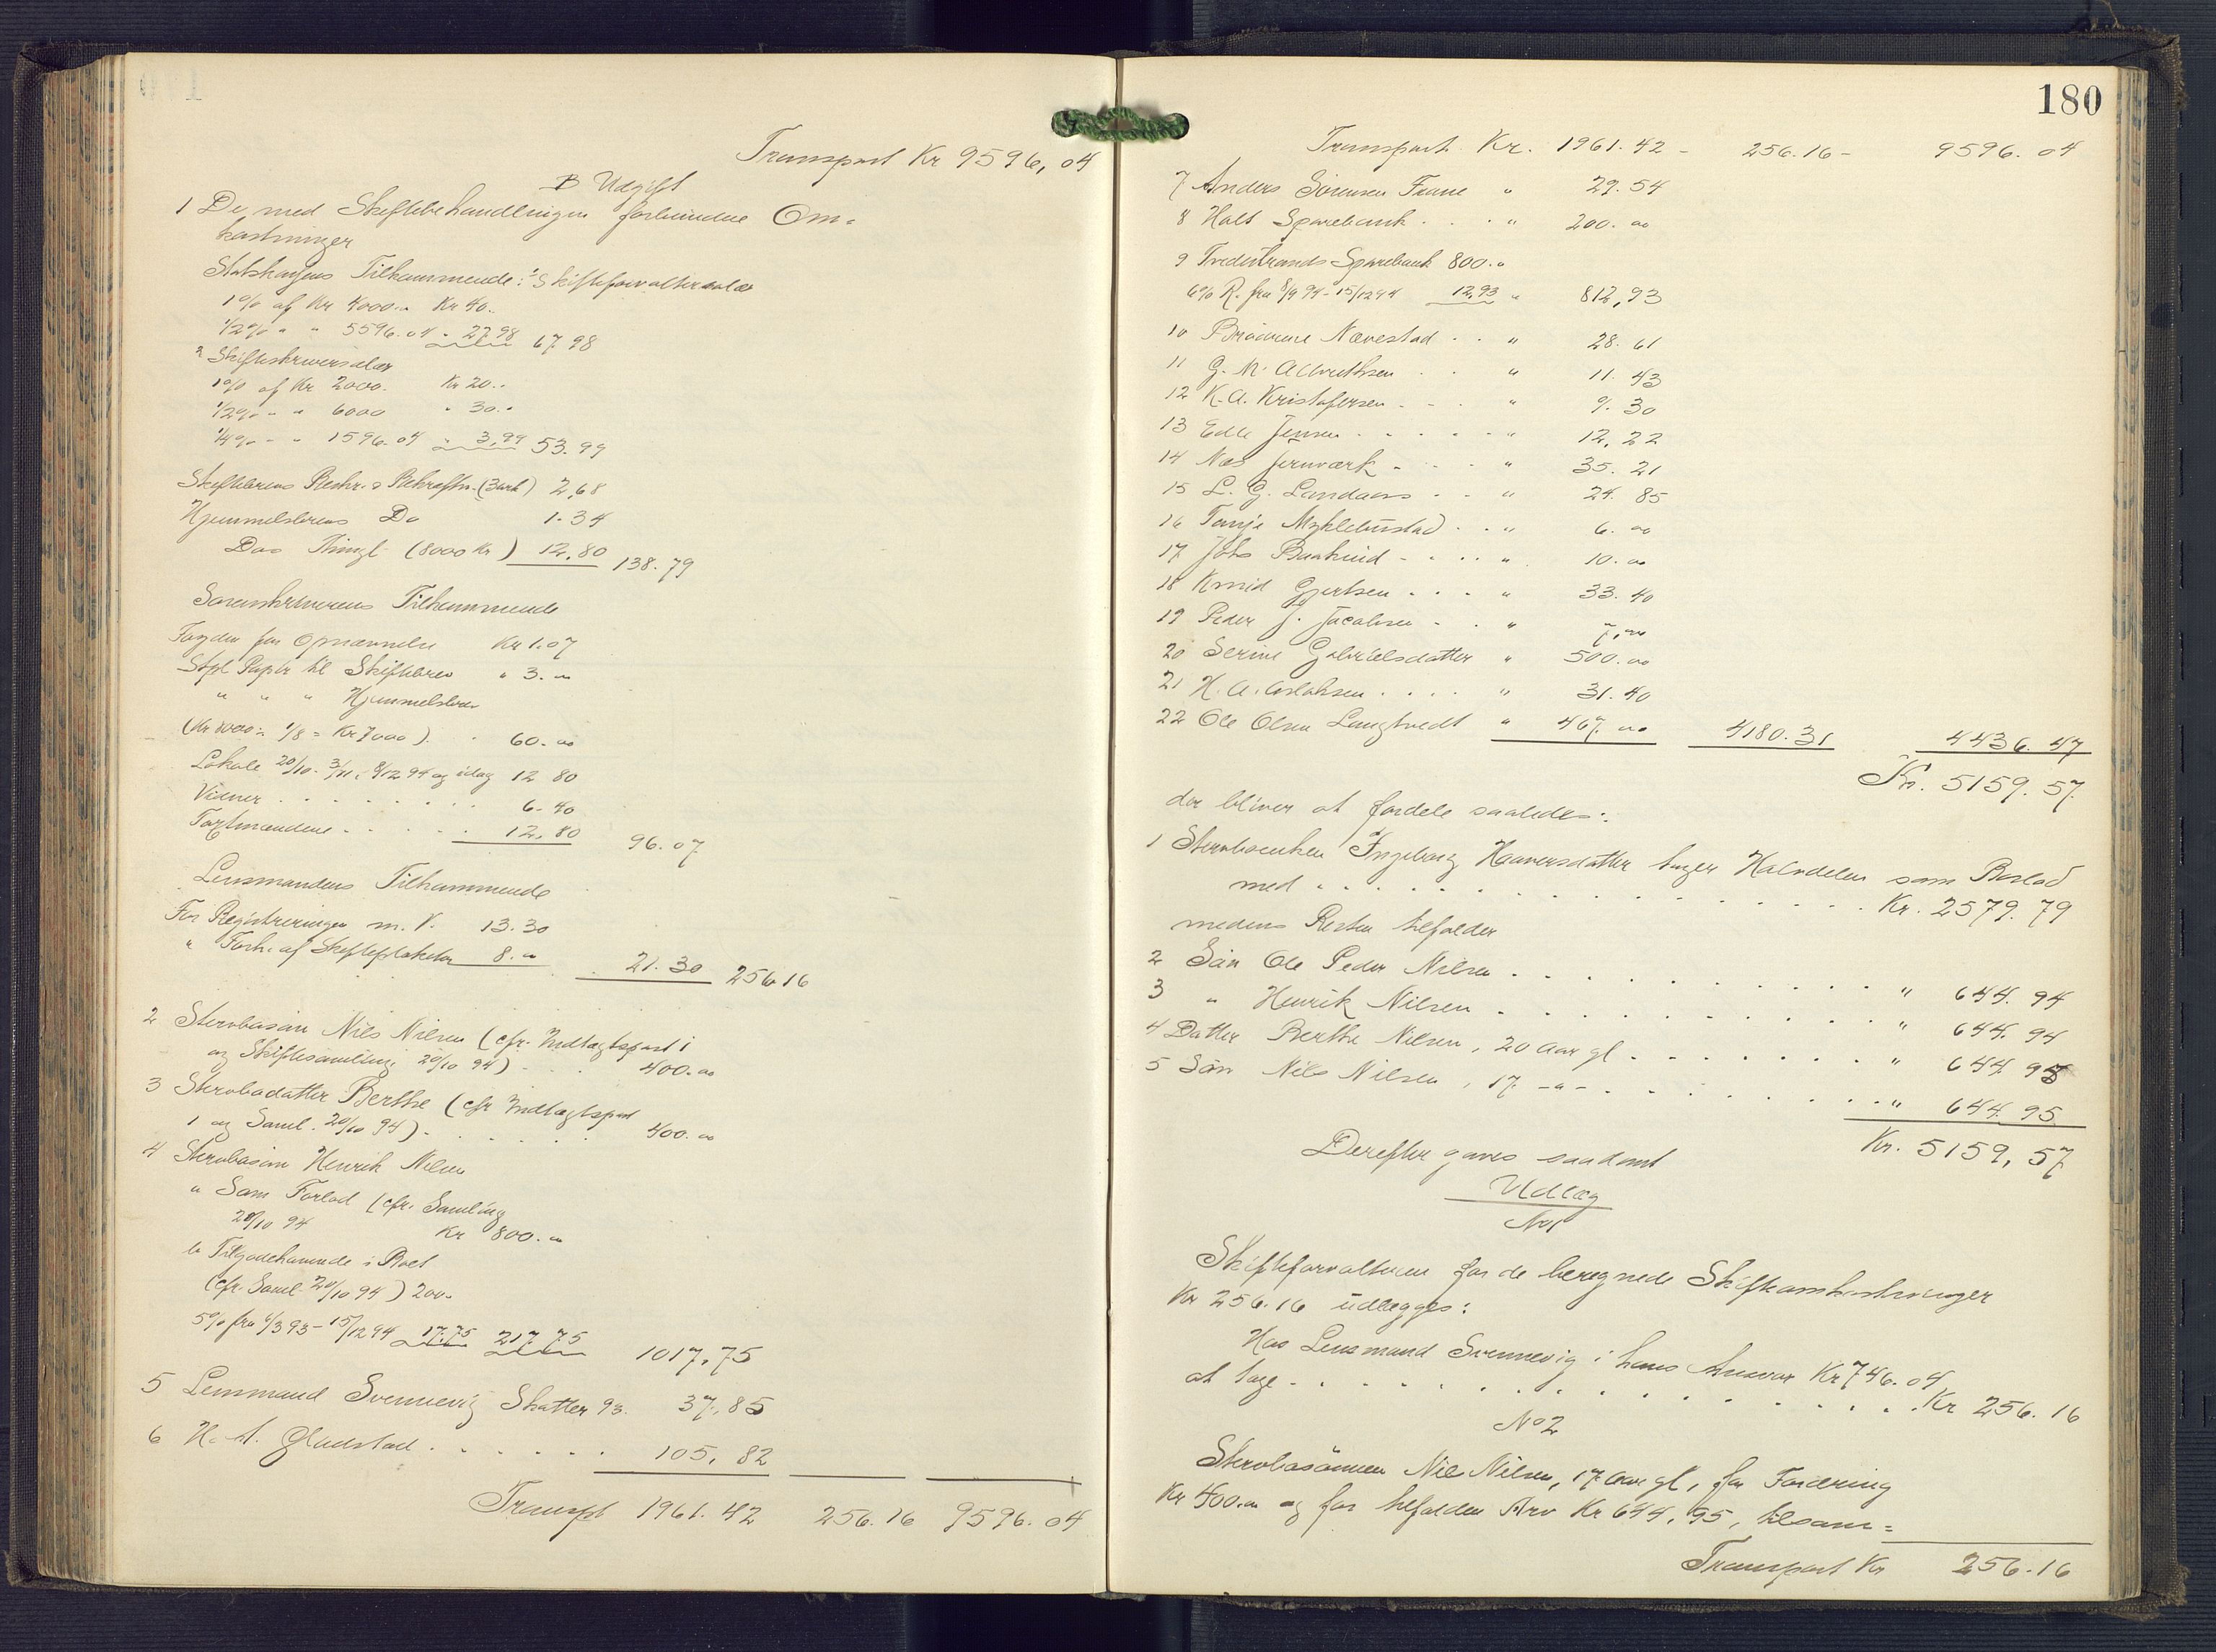 Transport Kr 9596,04
B Udgift
1 De med Skiftebehandlingen forbundne Om-
kostninger
Statskassens Tilkommende: 1 Skifteforvaltersalær
1% af Kr 4000.. Kr 40..
1/2% " " 5596.04 " 27.98 67.98
2 Skifteskriversalær
1% af Kr 2000. Kr 20..
1/2% " " 6000 " 30..
1/4% " " 1596.04 " 3,99 53.99
Skiftebrevs Beskr. & Bekræftn. (3 ark) 2,68
Hjemmelsbrevs Do 1.34
Das Thingl. (8000 Kr) 12,80 138.79
Sorenskriverens Tilkommende
Fogden for Opnævnelse Kr 1.07
Stpl. Papir til Skiftebrev " 3. "
" " " Hjemmelsbrev
(Kr 8000 ÷ 1/8 = Kr 7000). " 60.00
Lokale 20/10. 3/11, 8/12 94 og idag 12 80
Vidner . . . . . . . . 6.40
Taxtmændene . . . . . 12,80 96.07
Lensmandens Tilkommende
For Registreringen m. V. 13.30
" Fork. af Skifteplakaten 8. " . 21.30 256.16
2 Stervbosøn Nils Nilsen (cfr. Indtægtspost 1
og Skiftesamling 20/10 94) . . . 400.00
3 Stervbodatter Berthe (cfr Indtægtspost
1 og Saml. 20/10 94) . . . . . . 400.00
4 Stervbosøn Henrik Nilsen
a Som Forlod (cfr. Samling
20/10 94 Kr 800. "
b Tilgodehavende i Boet
(cfr. Saml. 20/10 94) 200..
5% fra 6/3 93 - 15/12 94 17.75 217 75 1017,75
5 Lensmand Svennevig Skatter 93. 37,85
6 H. A. Gladstad . . . . . . 105,82
Transpt 1961.42 256.16 9596.04
180
Transport Kr. 1961.42 - 256.16 - 9596.04
7 Anders Sørensen Frane " 29.54
8 Holt Sparebank . . . " 200.00
9 Tvedestrands Sparebank 800..
6% R. fra 8/9 94 - 15/12 94 12,93 " 812,93
10 Brødrene Nævestad . . " 28.61
11 G. M. Albrethsen . . " 11.43
12 K. A. Kristofersen . . . " 9.30
13 Edle Jensen . . . . . " 12,22
14 Næs Jernværk . . . " 35.21
15 L. G. Landaas . . . " 24.85
16 Tonje Myklebustad . . " 6.00
17 Johs Baashuid . . . . " 10.00
18 Knud Gjertsen . . . " 33.40
19 Peder J. Jacobsen . . " 7,00
20 Serine Gabrielsdatter " 500.00
21 H. A. Aslaksen . . . . " 31.40
22 Ole Olsen Langtvedt " 467.00 4180.31 4436.47
Kr. 5159.57.
der bliver at fordele saaledes:
1 Stervboenken Ingeborg Haaversdatter tager Halvdelen som Boslod
med . . . . . . . . . . . . . . Kr. 2579.79
medens Resten tilfalder
2 Søn Ole Peder Nilsen . . . . . . . . . . . " 644.94
3 " Henrik Nilsen . . . . . . . . . . . " 644.94
4 Datter Berthe Nilsen, 20 Aar gl . . . . . . . . " 644.95
5 Søn Nils Nilsen, 17 -"- . . . . . . . . . " 644.95.
Kr. 5159,57
Derefter gaves saadant
Udlæg
No 1
Skifteforvalteren for de beregnede Skifteomkostninger
Kr 256.16 udlægges:
Hos Lensmand Svennevig i hans Ansvar Kr 746.04
at tage . . . . . . . . . . . . . . Kr 256.16
No 2
Stervbosønnen Nils Nilsen, 17 Aar gl, for Fordring
Kr 400.00 og for tilfalden Arv Kr 644,95, tilsam-
Transport Kr 256.16